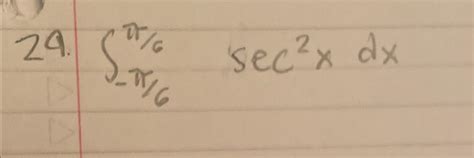 29. ∫_{-π/6}^{π/6} sec²x dx